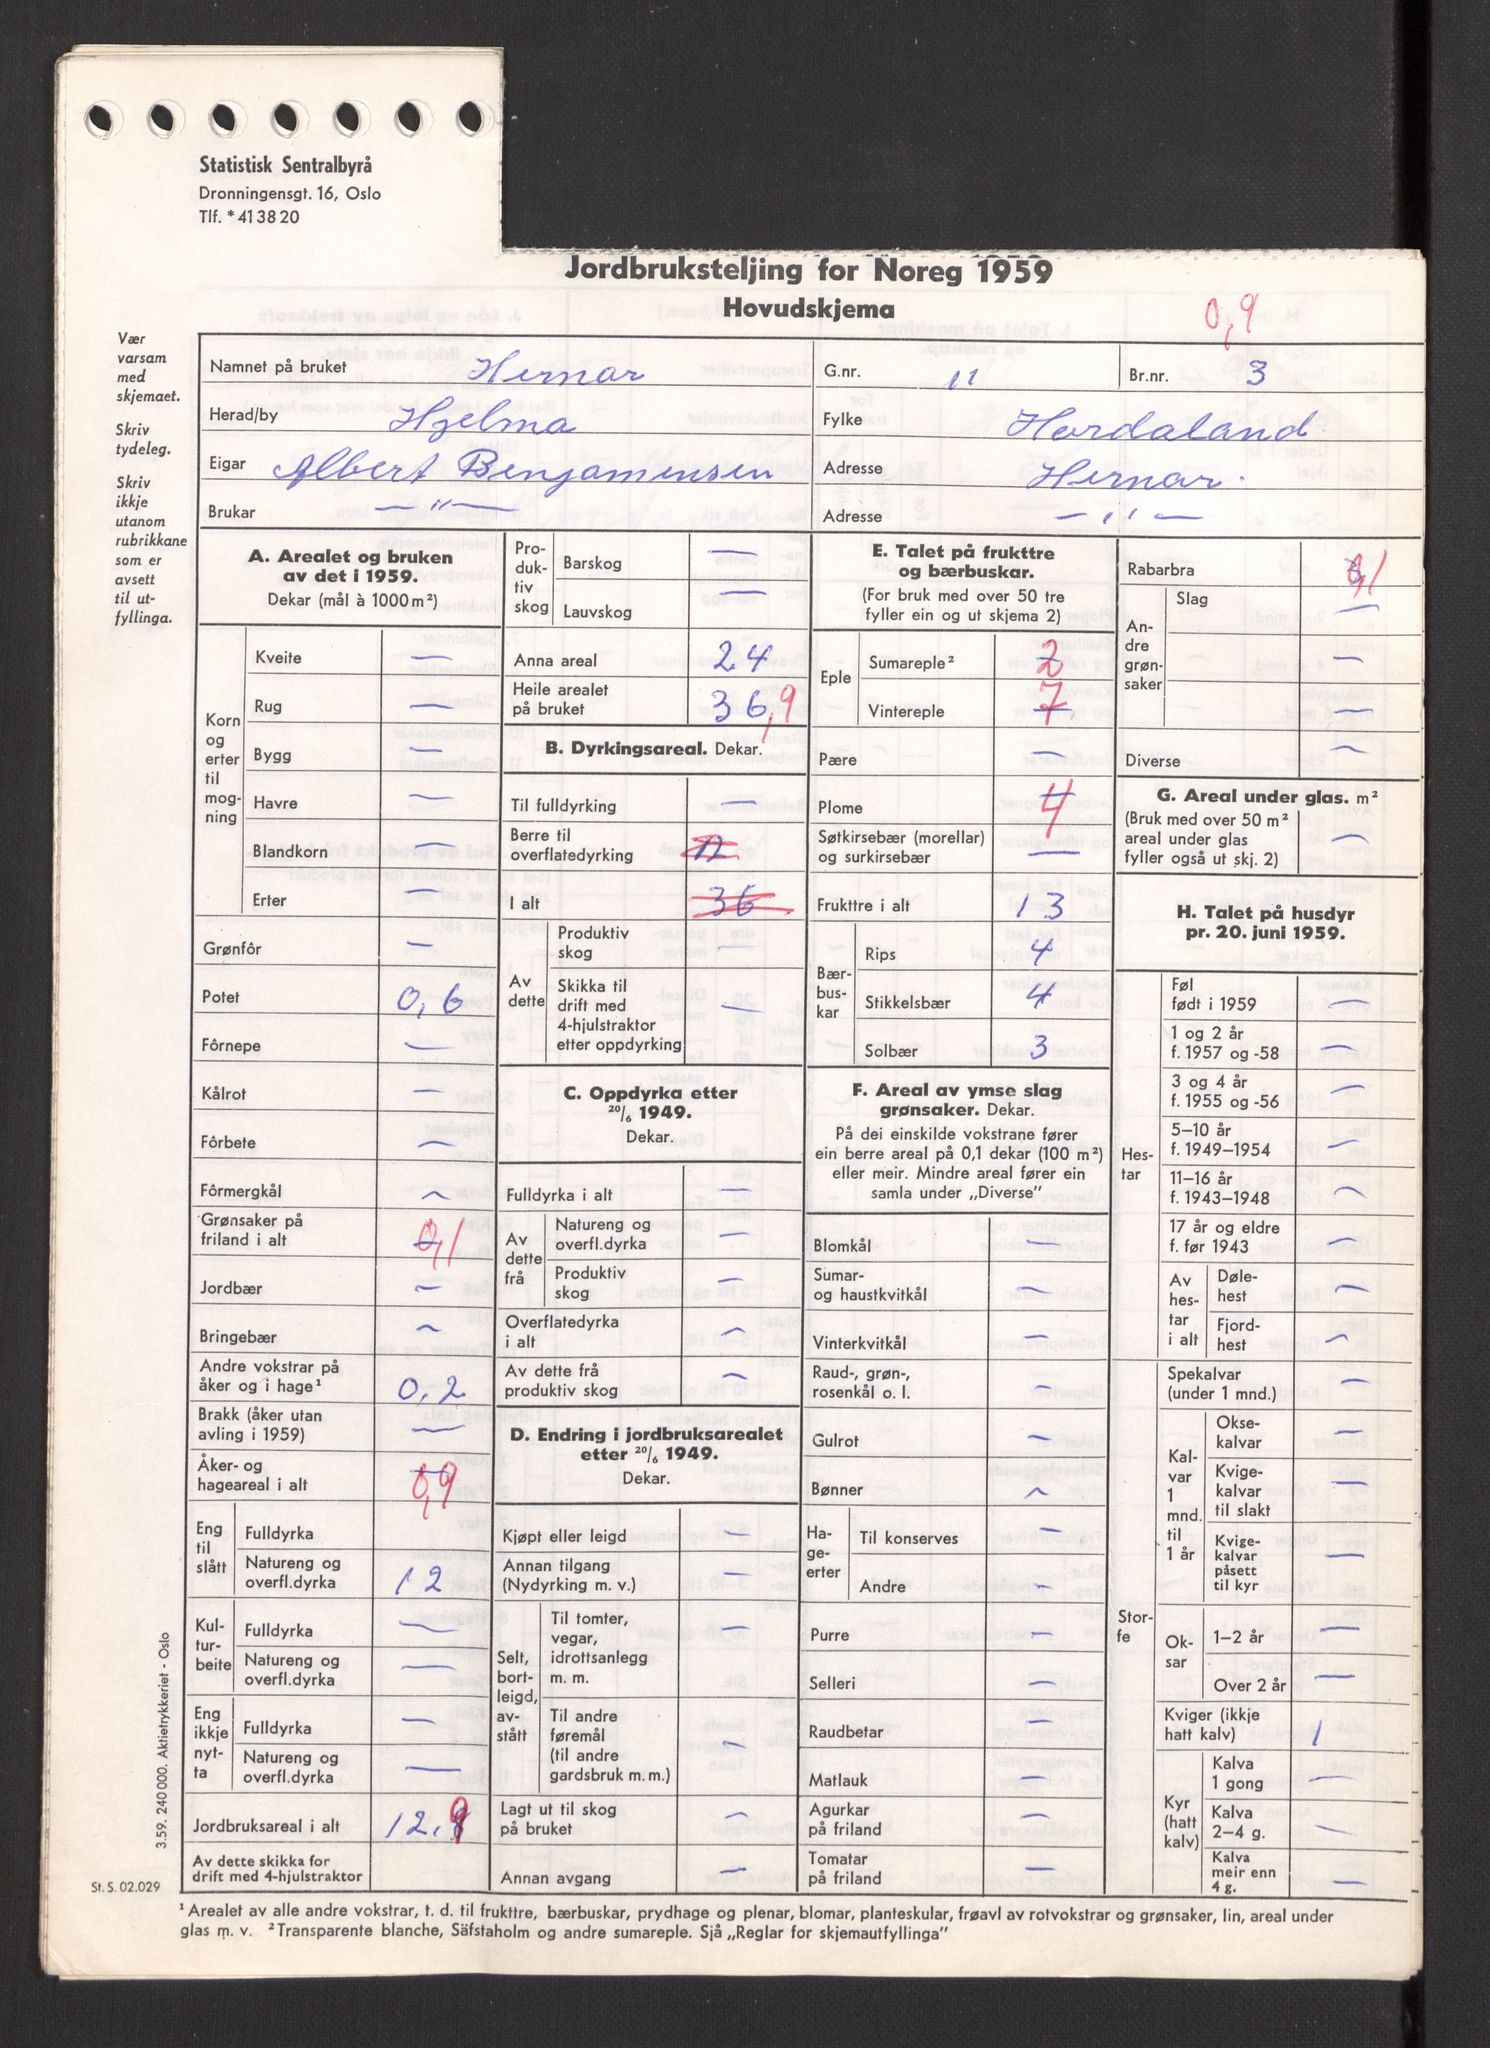 Statistisk Sentralbyrå
Dronningensgt. 16, Oslo
Tlf. * 41 38 20
Jordbruksteljing for Noreg 1959
Hovudskjema
0,9
Vær
varsam
med
skjemaet.
Skriv
tydeleg.
Skriv
ikkje
utanom
rubrikkane
som er
avsett
til ut-
fyllinga.
Namnet på bruket Hernar G.nr. 11 Br.nr. 3
Herad/by Hjelma Fylke Hordaland
Eigar Albert Benjaminsen Adresse Hernar.
Brukar — " — Adresse — " —
A. Arealet og bruken
av det i 1959.
Dekar (mål à 1000 m²)
Korn
og
erter
til
mog-
ning
Kveite —
Rug —
Bygg —
Havre —
Blandkorn —
Erter —
Grønfôr —
Potet 0,6
Fôrnepe —
Kålrot —
Fôrbete —
Fôrmergkål —
Grønsaker på
friland i alt 0,1
Jordbær —
Bringebær —
Andre vokstrar på
åker og i hage¹ 0,2
Brakk (åker utan
avling i 1959) —
Åker- og
hageareal i alt 0,9
Eng
til
slått
Fulldyrka
Natureng og
overfl.dyrka 12
Kul-
tur-
beite
Fulldyrka —
Natureng og
overfl.dyrka —
Eng
ikkje
nyt-
ta
Fulldyrka —
Natureng og
overfl.dyrka —
Jordbruksareal i alt 12,9
Av dette skikka for
drift med 4-hjulstraktor
Pro-
duk-
tiv
skog
Barskog —
Lauvskog —
Anna areal 24
Heile arealet
på bruket 36,9
B. Dyrkingsareal. Dekar.
Til fulldyrking —
Berre til
overflatedyrking 12
I alt 36
Av
dette
Produktiv
skog —
Skikka til
drift med
4-hjulstraktor
etter oppdyrking —
C. Oppdyrka etter
20/6 1949.
Dekar.
Fulldyrka i alt —
Av
dette
frå
Natureng og
overfl.dyrka —
Produktiv
skog —
Overflatedyrka
i alt —
Av dette frå
produktiv skog —
D. Endring i jordbruksarealet
etter 20/6 1949.
Dekar.
Kjøpt eller leigd —
Annan tilgang
(Nydyrking m. v.) —
Selt,
bort-
leigd,
av-
stått
Til tomter,
vegar,
idrottsanlegg
m. m. —
Til andre
føremål
(til andre
gardsbruk m. m.) —
Lagt ut til skog
på bruket —
Annan avgang —
E. Talet på frukttre
og bærbuskar.
(For bruk med over 50 tre
fyller ein og ut skjema 2)
Eple
Sumareple² 2
Vintereple 7
Pære —
Plome 4
Søtkirsebær (morellar)
og surkirsebær —
Frukttre i alt 13
Bær-
bus-
kar
Rips 4
Stikkelsbær 4
Solbær 3
F. Areal av ymse slag
grønsaker. Dekar.
På dei einskilde vokstrane fører
ein berre areal på 0,1 dekar (100 m²)
eller meir. Mindre areal fører ein
samla under „Diverse”
Blomkål —
Sumar-
og haustkvitkål —
Vinterkvitkål —
Raud-, grøn-,
rosenkål o. l. —
Gulrot —
Bønner —
Ha-
ge-
erter
Til konserves —
Andre —
Purre —
Selleri —
Raudbetar —
Matlauk —
Agurkar
på friland —
Tomatar
på friland —
Rabarbra 0,1
An-
dre
grøn-
saker
Slag —
—
—
Diverse —
G. Areal under glas. m²
(Bruk med over 50 m²
areal under glas
fyller også ut skj. 2) —
H. Talet på husdyr
pr. 20. juni 1959.
Hes-
tar
Føl
født i 1959 —
1 og 2 år
f. 1957 og -58 —
3 og 4 år
f. 1955 og -56 —
5–10 år
f. 1949–1954 —
11–16 år
f. 1943–1948 —
17 år og eldre
f. før 1943 —
Av
hes-
tar
i alt
Døle-
hest —
Fjord-
hest —
Stor-
fe
Spekalvar
(under 1 mnd.) —
Kal-
var
1
mnd.
til
1 år
Okse-
kalvar —
Kvige-
kalvar
til slakt —
Kvige-
kalvar
påsett
til kyr —
Ok-
sar
1–2 år —
Over 2 år —
Kviger (ikkje
hatt kalv) 1
Kyr
(hatt
kalv)
Kalva
1 gong —
Kalva
2–4 g. —
Kalva
meir enn
4 g. —
3.59. 240 000. Aktietrykkeriet - Oslo
St. S. 02.029
¹ Arealet av alle andre vokstrar, t. d. til frukttre, bærbuskar, prydhage og plenar, blomar, planteskular, frøavl av rotvokstrar og grønsaker, lin, areal under
glas m. v. ² Transparente blanche, Säfstaholm og andre sumareple. Sjå „Reglar for skjemautfyllinga”